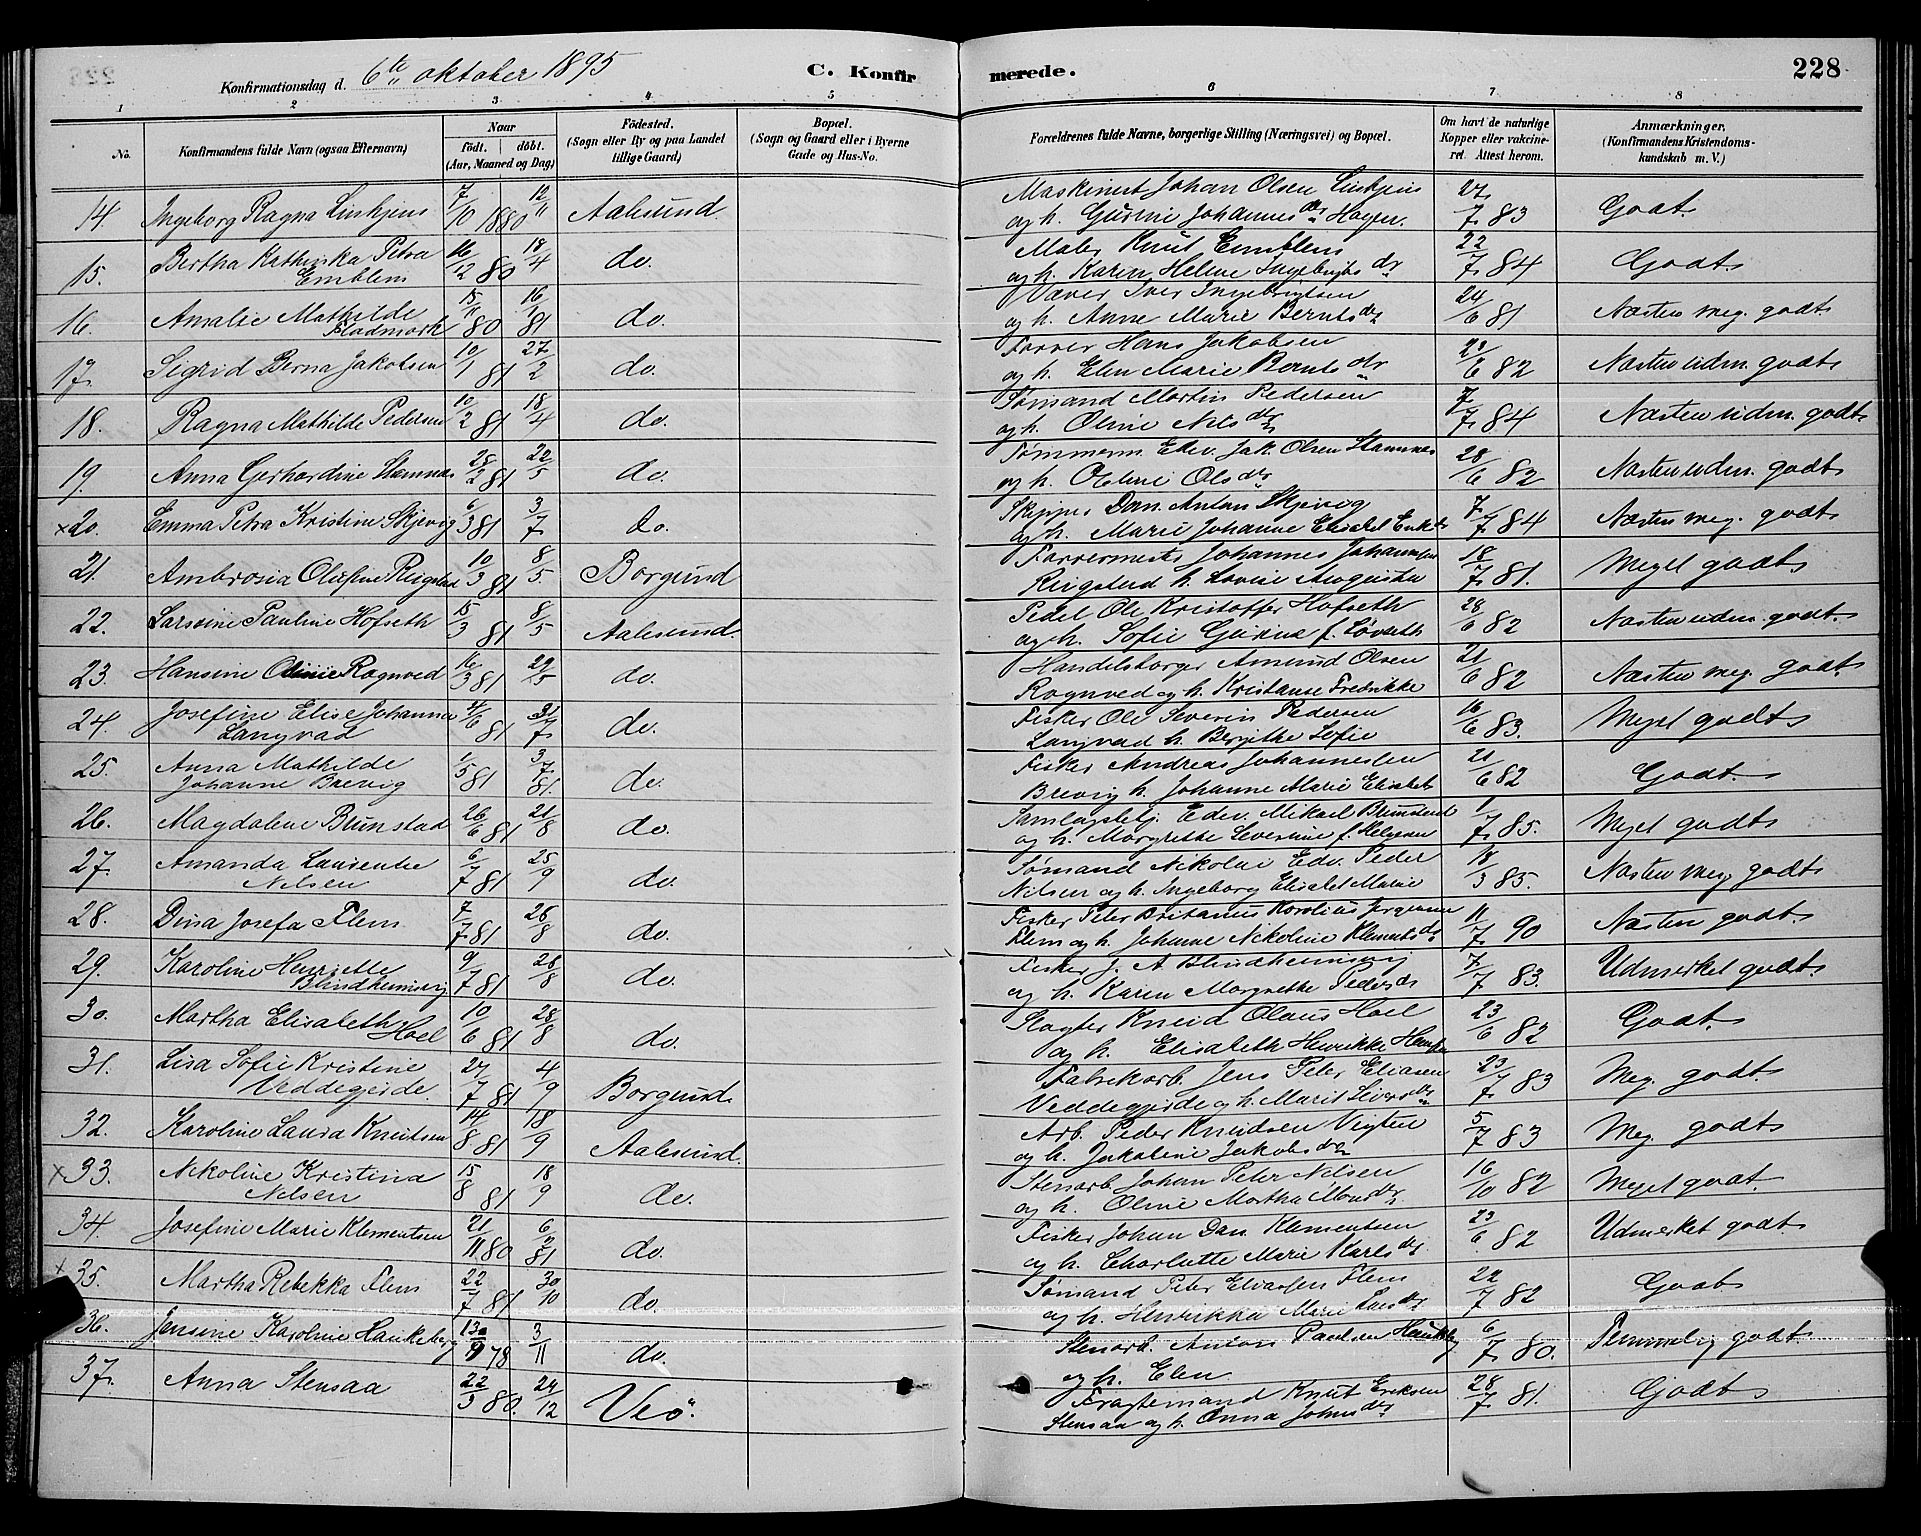 Konfirmationsdag d. 6te oktober 1895
C. Konfirmerede.
228
1 2 3 4 5 6 7 8
No.
Konfirmandens fulde Navn (ogsaa Efternavn)
Naar
födt. döbt.
(Aar, Maaned og Dag)
Födested.
(Sogn eller By og paa Landet
tillige Gaard)
Bopæl.
(Sogn og Gaard eller i Byerne
Gade og Hus-No.
Forældrenes fulde Navne, borgerlige Stilling (Næringsvei) og Bopæl.
Om havt de naturlige
Kopper eller vakcine-
ret. Attest herom.
Anmærkninger.
(Konfirmandens Kristendoms-
kundskab m. V.)
14. Ingeborg Ragna Linkjens 7/10 1880 12/11 Aalesund. Maskinist Johan Olsen Linkjens 27/7 83 Godt
og h. Gurine Johannesdr
15. Bertha Kathinka Petra 16/12 80 18/4 do. Maler Knut Emblem 22/7 84 Godt
Emblem og h. Karen Helene Ingebrigtsdr
16. Amalie Mathilde 15/11 80 16/1 81 do. Væver Iver Ingebrigtsen 24/6 81 Næsten meg. godt
Fladmark og h. Anne Marie Berntsdr
17. Sigrid Berna Jakobsen 10/1 81 27/2 do. Farver Hans Jakobsen 82 Næsten udm. godt
og h. Elen Marie Berntsdr
18. Ragna Mathilde Pedersen 10/2 81 18/4 do. Sømand Martin Pedersen 7/7 84 Næsten udm. godt
og h. Oline Nilsdr
19. Anna Gerhardine Stamnes 28/2 81 22/5 do. Tømmerm. Edv. Jak. Olsen Stamnes 28/6 82 Næsten udm. godt
og h. Olsdr
×20. Emma Petra Kristine Skjevig 6/3 81 3/7 do. Skipper Dan. Anton Skjevig 7/7 84 Næsten meg. godt
og h. Marie Johanne Elisabet
21. Ambrosia Olufine Ringstad 10/3 81 8/5 Borgund Farvermester Johannes Johannesen 18/7 81. Meget godt
Ringstad h. Lovise Augusta
22. Larsine Pauline Hofseth 15/3 81 8/5 Aalesund. Pedel Ole Kristoffer Hofseth 28/6 82 Næsten udm. godt.
og h. Sofie Gurine f. Løvseth
23. Hansine Olinie Rognved 16/3 81 29/5 do. Handelsborger Amund Olsen 21/6 82 Næsten meg. godt.
Rognved og h. Kristanse Fredrikke
24. Josefine Elise Johanna 81 31/7 do. Fisker Ole Severin Pedersen 16/6 83. Meget godt
Langvad Langvad h. Bergitte Sofie
25. Anna Mathilde 1/5 81 3/7 81. do. Fisker Andreas Johannesen 21/6 82 Godt.
Johanne Brevig Brevig h. Johanne Marie Elisabet
26. Magdalene Brunstad 26/6 81 21/8 do. Samlagsbetj. Edv. Mikael Brunstad 1/7 85. Meget godt
og h. Margrethe Severine f. Helgesen
27. Amanda Laurentse 6/7 81 25/9 do. Sømand Nikolai Edv. Peder 18/3 85. Næsten meg. godt
Nilsen Nilsen og h. Ingeborg Elisabet Marie
28. Dina Josefa Flem 7/7 81 26/8 do. Fisker Peter Britanus Karolius Jørgensen 11/7 90 Næsten godt.
Flem og h. Johanne Nikoline Klementsdr
29. Karoline Henriette 9/7 81 28/8 do. Fisker J. A Blindheimsvig 7/7 83. Udmerket godt
Blindheimsvig og h. Karen Margrethe Pedersdr
30. Martha Elisabeth 10/6 81 28/8 do. Slagter Knud Olaus Hoel 23/6 82 Godt.
Hoel og h. Elisabeth Henrikke Hansen
31. Lisa Sofie Kristine 27/7 81 4/9 Borgund Fabrikarb. Jens Peter Eliasen 23/7 83 Meg. godt.
Veddegjerde. Veddegjerde og h. Marit Siversdr
32. Karoline Laura Knutsen 14/8 81 18/9 Aalesund. Arb. Peder Knudsen Vigten 5/7 83 Meg. godt
og h. Jakobine Jakobsdr
×33. Nikoline Kristina 15/8 81 18/9 do. Stenarb. Johan Peter Nilsen 16/10 82 Meget godt.
Nilsen og h. Oline Martha
34. Josefine Marie Klementsen 21/11 80 6/2 81 do. Fisker Johan Dan. Klementsen 23/6. 82 Udmerket godt
og h. Charlotte Marie Karlsdr
×35. Martha Rebekka Flem 22/7 81 30/10 do. Sømand Peter Eliassen Flem 22/7 82 Godt
og h. Henrikka Marie Larsdr
36. Jensine Karoline Haukeberg 13/9 78 3/11 do. Stenarb. Anton Paulsen Haukeberg 6/7 80. Temmelig godt.
og h. Elen
37. Anna Stensaa 22/3 80. 24/12 Veö. Fragtemand Knut Eriksen 28/7 81. Godt
Stensaa og h. Anna Johnsdr